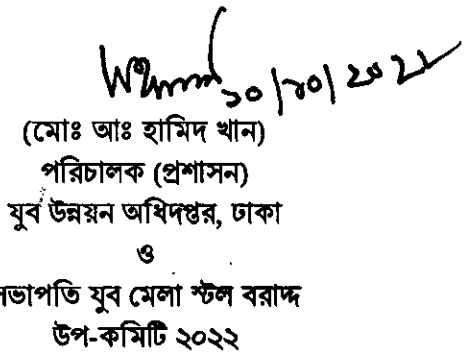 ২০/১০/২০২২
(মোঃ আঃ হামিদ খান)
পরিচালক (প্রশাসন)
যুব উন্নয়ন অধিদপ্তর, ঢাকা
ও
সভাপতি যুব মেলা স্টল বরাদ্দ
উপ-কমিটি ২০২২